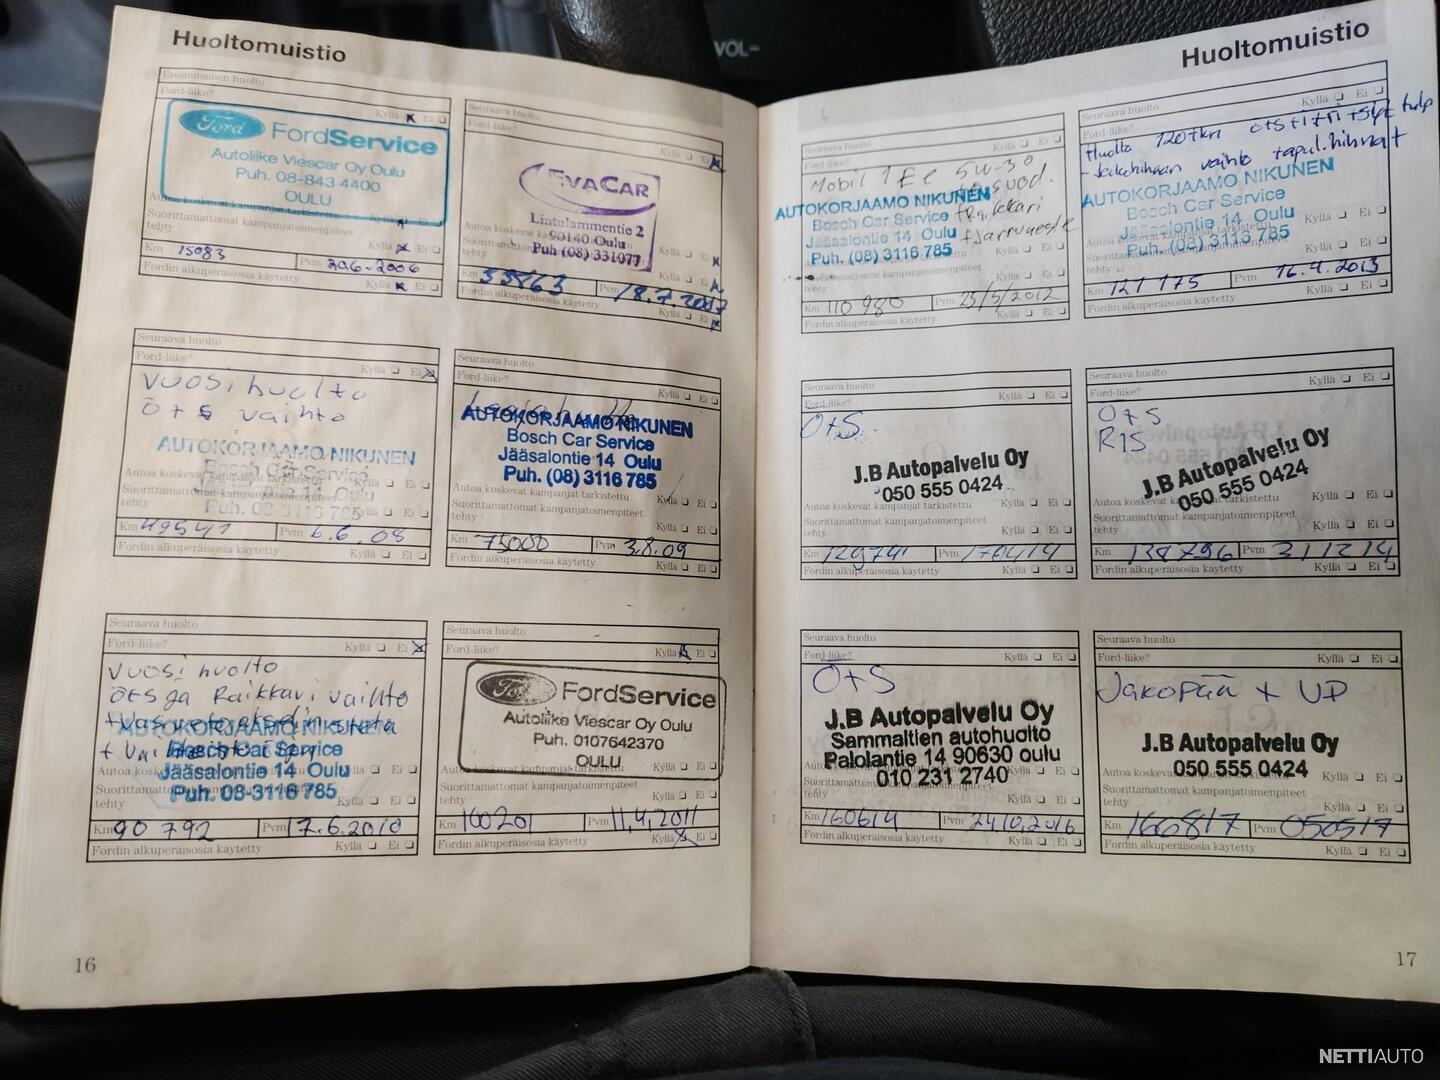 Huoltomuistio
Ensimmäinen huolto
Ford-liike?
Kyllä Ei
Ford FordService
Autoliike Viescar Oy Oulu
Puh. 08-843 4400
OULU
Autoa koskevat kampanjat tarkistettu
Suorittamattomat kampanjatoimenpiteet
tehty
Kyllä Ei
Km 15083 Pvm 20.6.2006
Fordin alkuperäisosia käytetty
Kyllä Ei
Seuraava huolto
Ford-liike?
Kyllä Ei
EVACAR
Lintulammentie 2
90140 Oulu
Puh (08) 331077
Kyllä Ei
Km Pvm 18.7.2007
Fordin alkuperäisosia käytetty
Kyllä Ei
Seuraava huolto
Ford-liike?
Kyllä Ei
Vuosihuolto
Ö+S vaihto
AUTOKORJAAMO NIKUNEN
Bosch Car Service
Jääsalontie 14 Oulu
Puh. 08-3116 785
Autoa koskevat kampanjat tarkistettu
Kyllä Ei
Suorittamattomat kampanjatoimenpiteet
tehty
Kyllä Ei
Km 49541 Pvm 6.6.08
Fordin alkuperäisosia käytetty
Kyllä Ei
Seuraava huolto
Ford-liike?
Kyllä Ei
AUTOKORJAAMO NIKUNEN
Bosch Car Service
Jääsalontie 14 Oulu
Puh. (08) 3116 785
Autoa koskevat kampanjat tarkistettu
Kyllä Ei
Suorittamattomat kampanjatoimenpiteet
tehty
Kyllä Ei
Km 75000 Pvm 3.8.09
Fordin alkuperäisosia käytetty
Kyllä Ei
Seuraava huolto
Ford-liike?
Kyllä Ei
Vuosihuolto
Ö+S ja Raikkari vaihto
AUTOKORJAAMO NIKUNEN
Bosch Car Service
Jääsalontie 14 Oulu
Puh. 08-3116 785
Autoa koskevat
Kyllä Ei
Suorittamattomat kampanjatoimenpiteet
tehty
Kyllä Ei
Km 90 792 Pvm 17.6.2010
Fordin alkuperäisosia käytetty
Kyllä Ei
Seuraava huolto
Ford-liike?
Kyllä Ei
Ford FordService
Autoliike Viescar Oy Oulu
Puh. 0107642370
OULU
Autoa koskevat kampanjat tarkistettu
Kyllä Ei
Suorittamattomat kampanjatoimenpiteet
tehty
Kyllä Ei
Km 100201 Pvm 11.4.2011
Fordin alkuperäisosia käytetty
Kyllä Ei
16
Huoltomuistio
Seuraava huolto
Ford-liike?
Kyllä Ei
Mobil 1 5W-30
AUTOKORJAAMO NIKUNEN
Bosch Car Service
+Raikkari
Jääsalontie 14 Oulu
+jarruneste
Puh. (08) 3116 785
Suorittamattomat kampanjatoimenpiteet
tehty
Kyllä Ei
Km 110 980 Pvm 23/5/2012
Fordin alkuperäisosia käytetty
Kyllä Ei
Seuraava huolto
Kyllä Ei
Ford-liike?
Huolto 120tkm
Jakohihnan vaihto +apul.hihnat
AUTOKORJAAMO NIKUNEN
Bosch Car Service
Jääsalontie 14 Oulu
Puh. (08) 3116 785
Kyllä Ei
tehty
Kyllä Ei
Km 121 175 Pvm 16.4.2013
Fordin alkuperäisosia käytetty
Kyllä Ei
Seuraava huolto
Ford-liike?
Kyllä Ei
Ö+S
J.B Autopalvelu Oy
050 555 0424
Autoa koskevat kampanjat tarkistettu
Kyllä Ei
Suorittamattomat kampanjatoimenpiteet
tehty
Kyllä Ei
Km 129741 Pvm 170414
Fordin alkuperäisosia käytetty
Kyllä Ei
Seuraava huolto
Ford-liike?
Kyllä Ei
Ö+S
RIS
J.B Autopalvelu Oy
050 555 0424
Autoa koskevat kampanjat tarkistettu
Kyllä Ei
Suorittamattomat kampanjatoimenpiteet
tehty
Kyllä Ei
Km 138796 Pvm 311214
Fordin alkuperäisosia käytetty
Kyllä Ei
Seuraava huolto
Ford-liike?
Kyllä Ei
Ö+S
J.B Autopalvelu Oy
Sammaltien autohuolto
Palolantie 14 90630 oulu
010 231 2740
Autoa koskevat
Kyllä Ei
Suorittamattomat
tehty
Kyllä Ei
Km 160614 Pvm 24.10.2016
Fordin alkuperäisosia käytetty
Kyllä Ei
Seuraava huolto
Ford-liike?
Kyllä Ei
Jakopää + VP
J.B Autopalvelu Oy
050 555 0424
Autoa koskevat kampanjat tarkistettu
Kyllä Ei
Suorittamattomat kampanjatoimenpiteet
tehty
Kyllä Ei
Km 166817 Pvm 050517
Fordin alkuperäisosia käytetty
Kyllä Ei
17
VOL-
NETTIAUTO